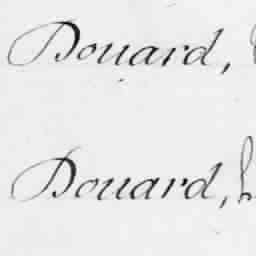 Douard,
Douard,